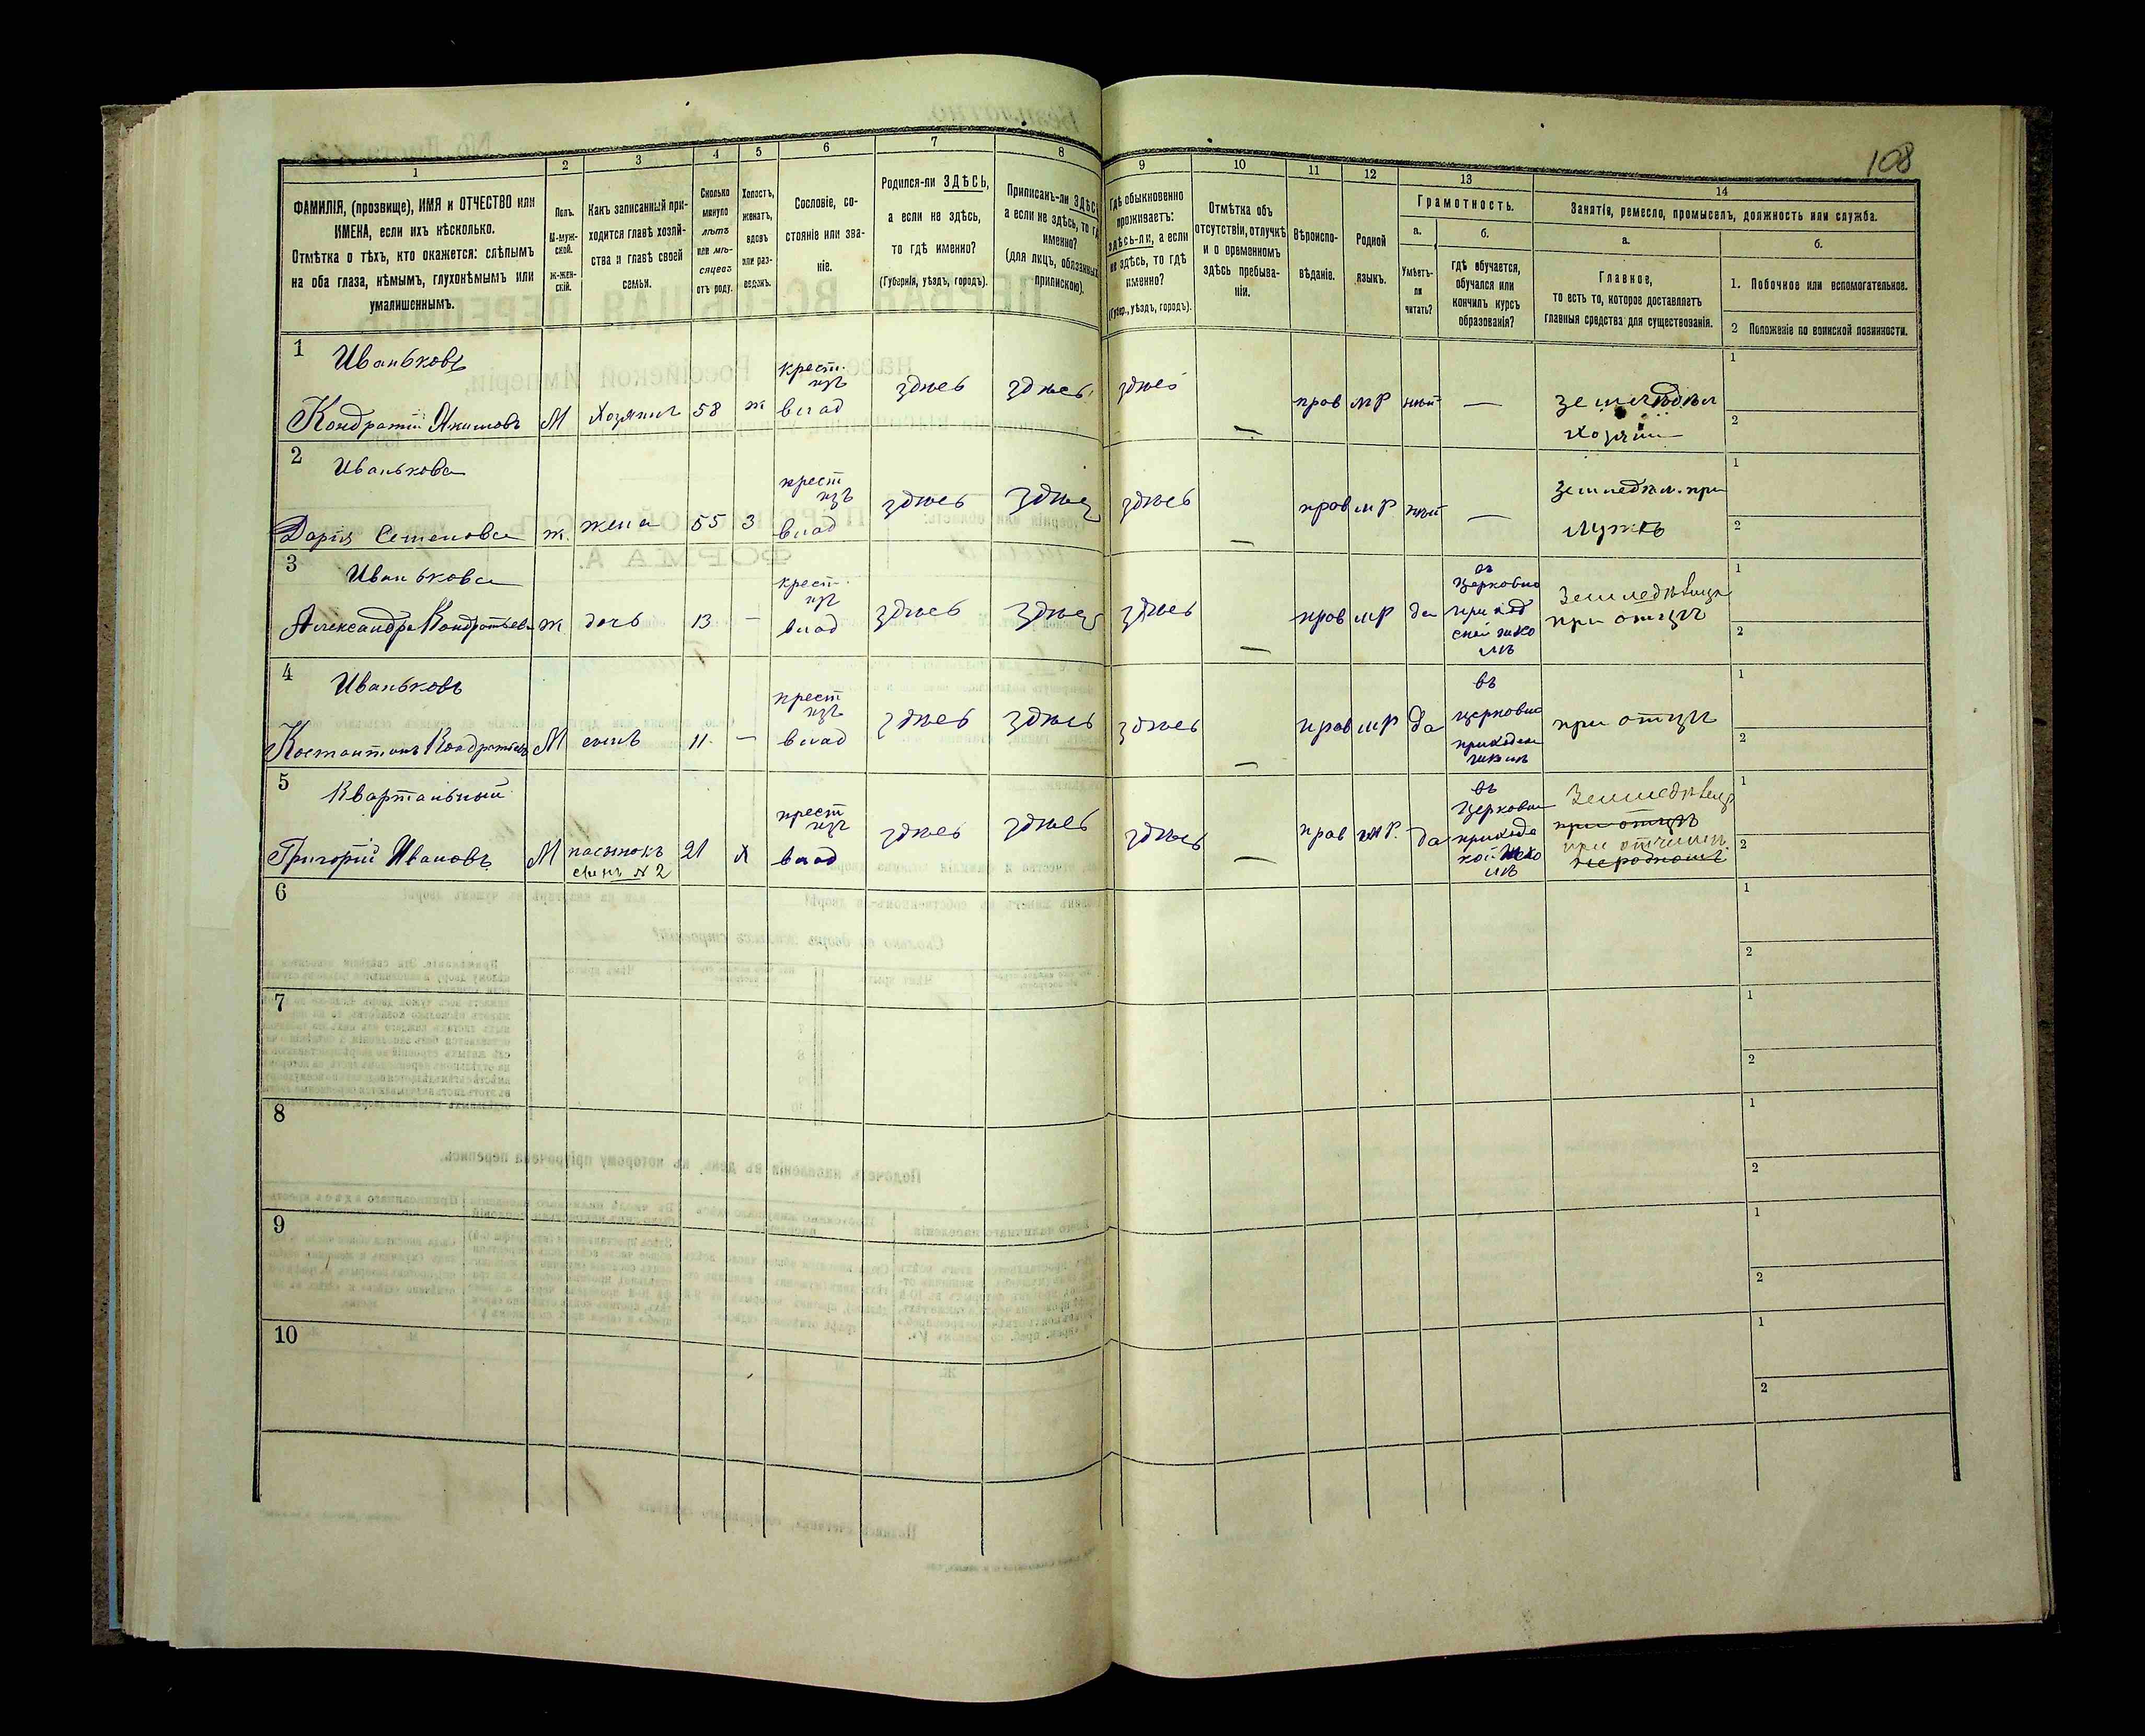 108
1 2 3 4 5 6 7 8 9 10 11 12 13 14
ФАМИЛІЯ, (прозвище), ИМЯ и ОТЧЕСТВО или
ИМЕНА, если ихъ нѣсколько.
Отмѣтка о тѣхъ, кто окажется: слѣпымъ
на оба глаза, нѣмымъ, глухонѣмымъ или
умалишеннымъ.
Полъ.
М-муж-
ской.
Ж-жен-
скій.
Какъ записанный при-
ходится главѣ хозяй-
ства и главѣ своей
семьи.
Сколько
минуло
лѣтъ
или мѣ-
сяцевъ
отъ роду.
Холостъ,
женатъ,
вдовъ
или раз-
веденъ.
Сословіе, со-
стояніе или зва-
ніе.
Родился-ли ЗДѢСЬ,
а если не здѣсь,
то гдѣ именно?
(Губернія, уѣздъ, городъ).
Приписанъ-ли ЗДѢСЬ,
а если не здѣсь, то гдѣ
именно?
(для лицъ, обязанныхъ
припискою).
Гдѣ обыкновенно
проживаетъ:
здѣсь-ли, а если
не здѣсь, то гдѣ
именно?
(Губер., уѣздъ, городъ).
Отмѣтка объ
отсутствіи, отлучкѣ
и о временномъ
здѣсь пребыва-
ніи.
Вѣроиспо-
вѣданіе.
Родной
языкъ.
Грамотность.
а.
Умѣетъ-
ли
читать?
б.
гдѣ обучается,
обучался или
кончилъ курсъ
образованія?
Занятія, ремесло, промыселъ, должность или служба.
а.
Главное,
то есть то, которое доставляетъ
главныя средства для существованія.
б.
1. Побочное или вспомогательное.
2 Положеніе по воинской повинности.
1
Иваньковъ
Кондратій Якимовъ
М
Хозяинъ
58
ж
крест.
изъ
влад
здѣсь
здѣсь
здѣсь
—
прав
мР
нѣт
—
земледѣл
Хозяин
1
2
2
Иванькова
Дарія Семенова
ж.
жена
55
З
крест
изъ
влад
здѣсь
здѣсь
здѣсь
—
прав
мР
нѣт
—
земледѣл. при
мужѣ
1
2
3
Иванькова
Александра Кондратьева
ж
дочь
13
—
крест.
изъ
влад
здѣсь
здѣсь
здѣсь
—
прав
мР
да
въ
церковно
приход
ской шко
лѣ
Земледѣлица
при отцѣ
1
2
4
Иваньковъ
Костантинъ Кондратьевъ
М
сынъ
11
—
крест
изъ
влад
здѣсь
здѣсь
здѣсь
—
прав
мР
да
въ
церковно
приходск
школѣ
при отцѣ
1
2
5
Квартальный
Григорій Ивановъ
М
пасынокъ
сынъ № 2
21
Х
крест
изъ
влад
здѣсь
здѣсь
здѣсь
—
прав
мР.
да
въ
Церковно
приходс
кой шко
лѣ
Земледѣлец
при отцѣ
при отчимѣ
неродномъ
1
2
6
1
2
7
1
2
8
1
2
9
1
2
10
1
2